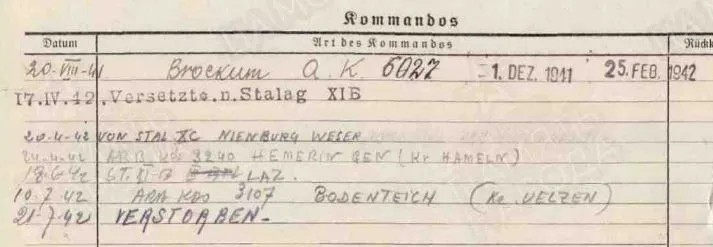 Kommandos
Datum Art des Kommandos Rückk
20.VIII.41 Brockum A.K. 6027 -1. DEZ. 1941 25. FEB. 1942
17.IV.42. Versetzt n. Stalag XIB
20-4-42 VON STAL XC NIENBURG WESER
24-4-42 ARB KDO 3240 HEMERINGEN (Kr HAMELN)
ST. XI-B LAZ.
10.7.42 ARB KDO 3107 BODENTEICH (Kr UELZEN)
21-7-42 VERSTORBEN-